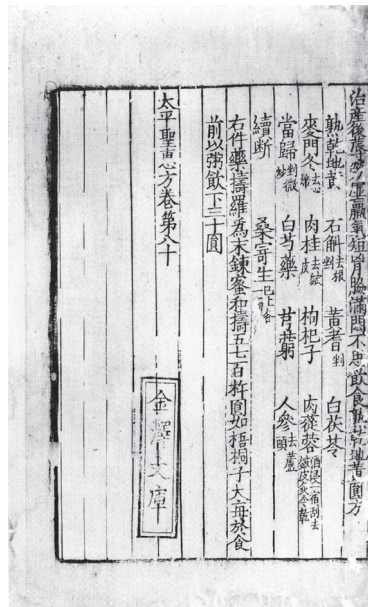 治產後蓐勞虛羸氣短胷脇滿悶不思飲食熟乾地黃圓方
熟乾地黃 石斛去根剉 黃耆剉 白茯苓
麥門冬去心焙 肉桂去皴皮 枸杞子 肉蓯蓉酒浸一宿刮去皴皮炙令乾
當歸剉微炒 白芍藥 芎藭 人參去蘆頭
續斷 桑寄生已上各一兩
右件藥擣羅為末鍊蜜和擣五七百杵圓如梧桐子大每於食
前以粥飲下三十圓
太平聖惠方卷第八十
金澤文庫